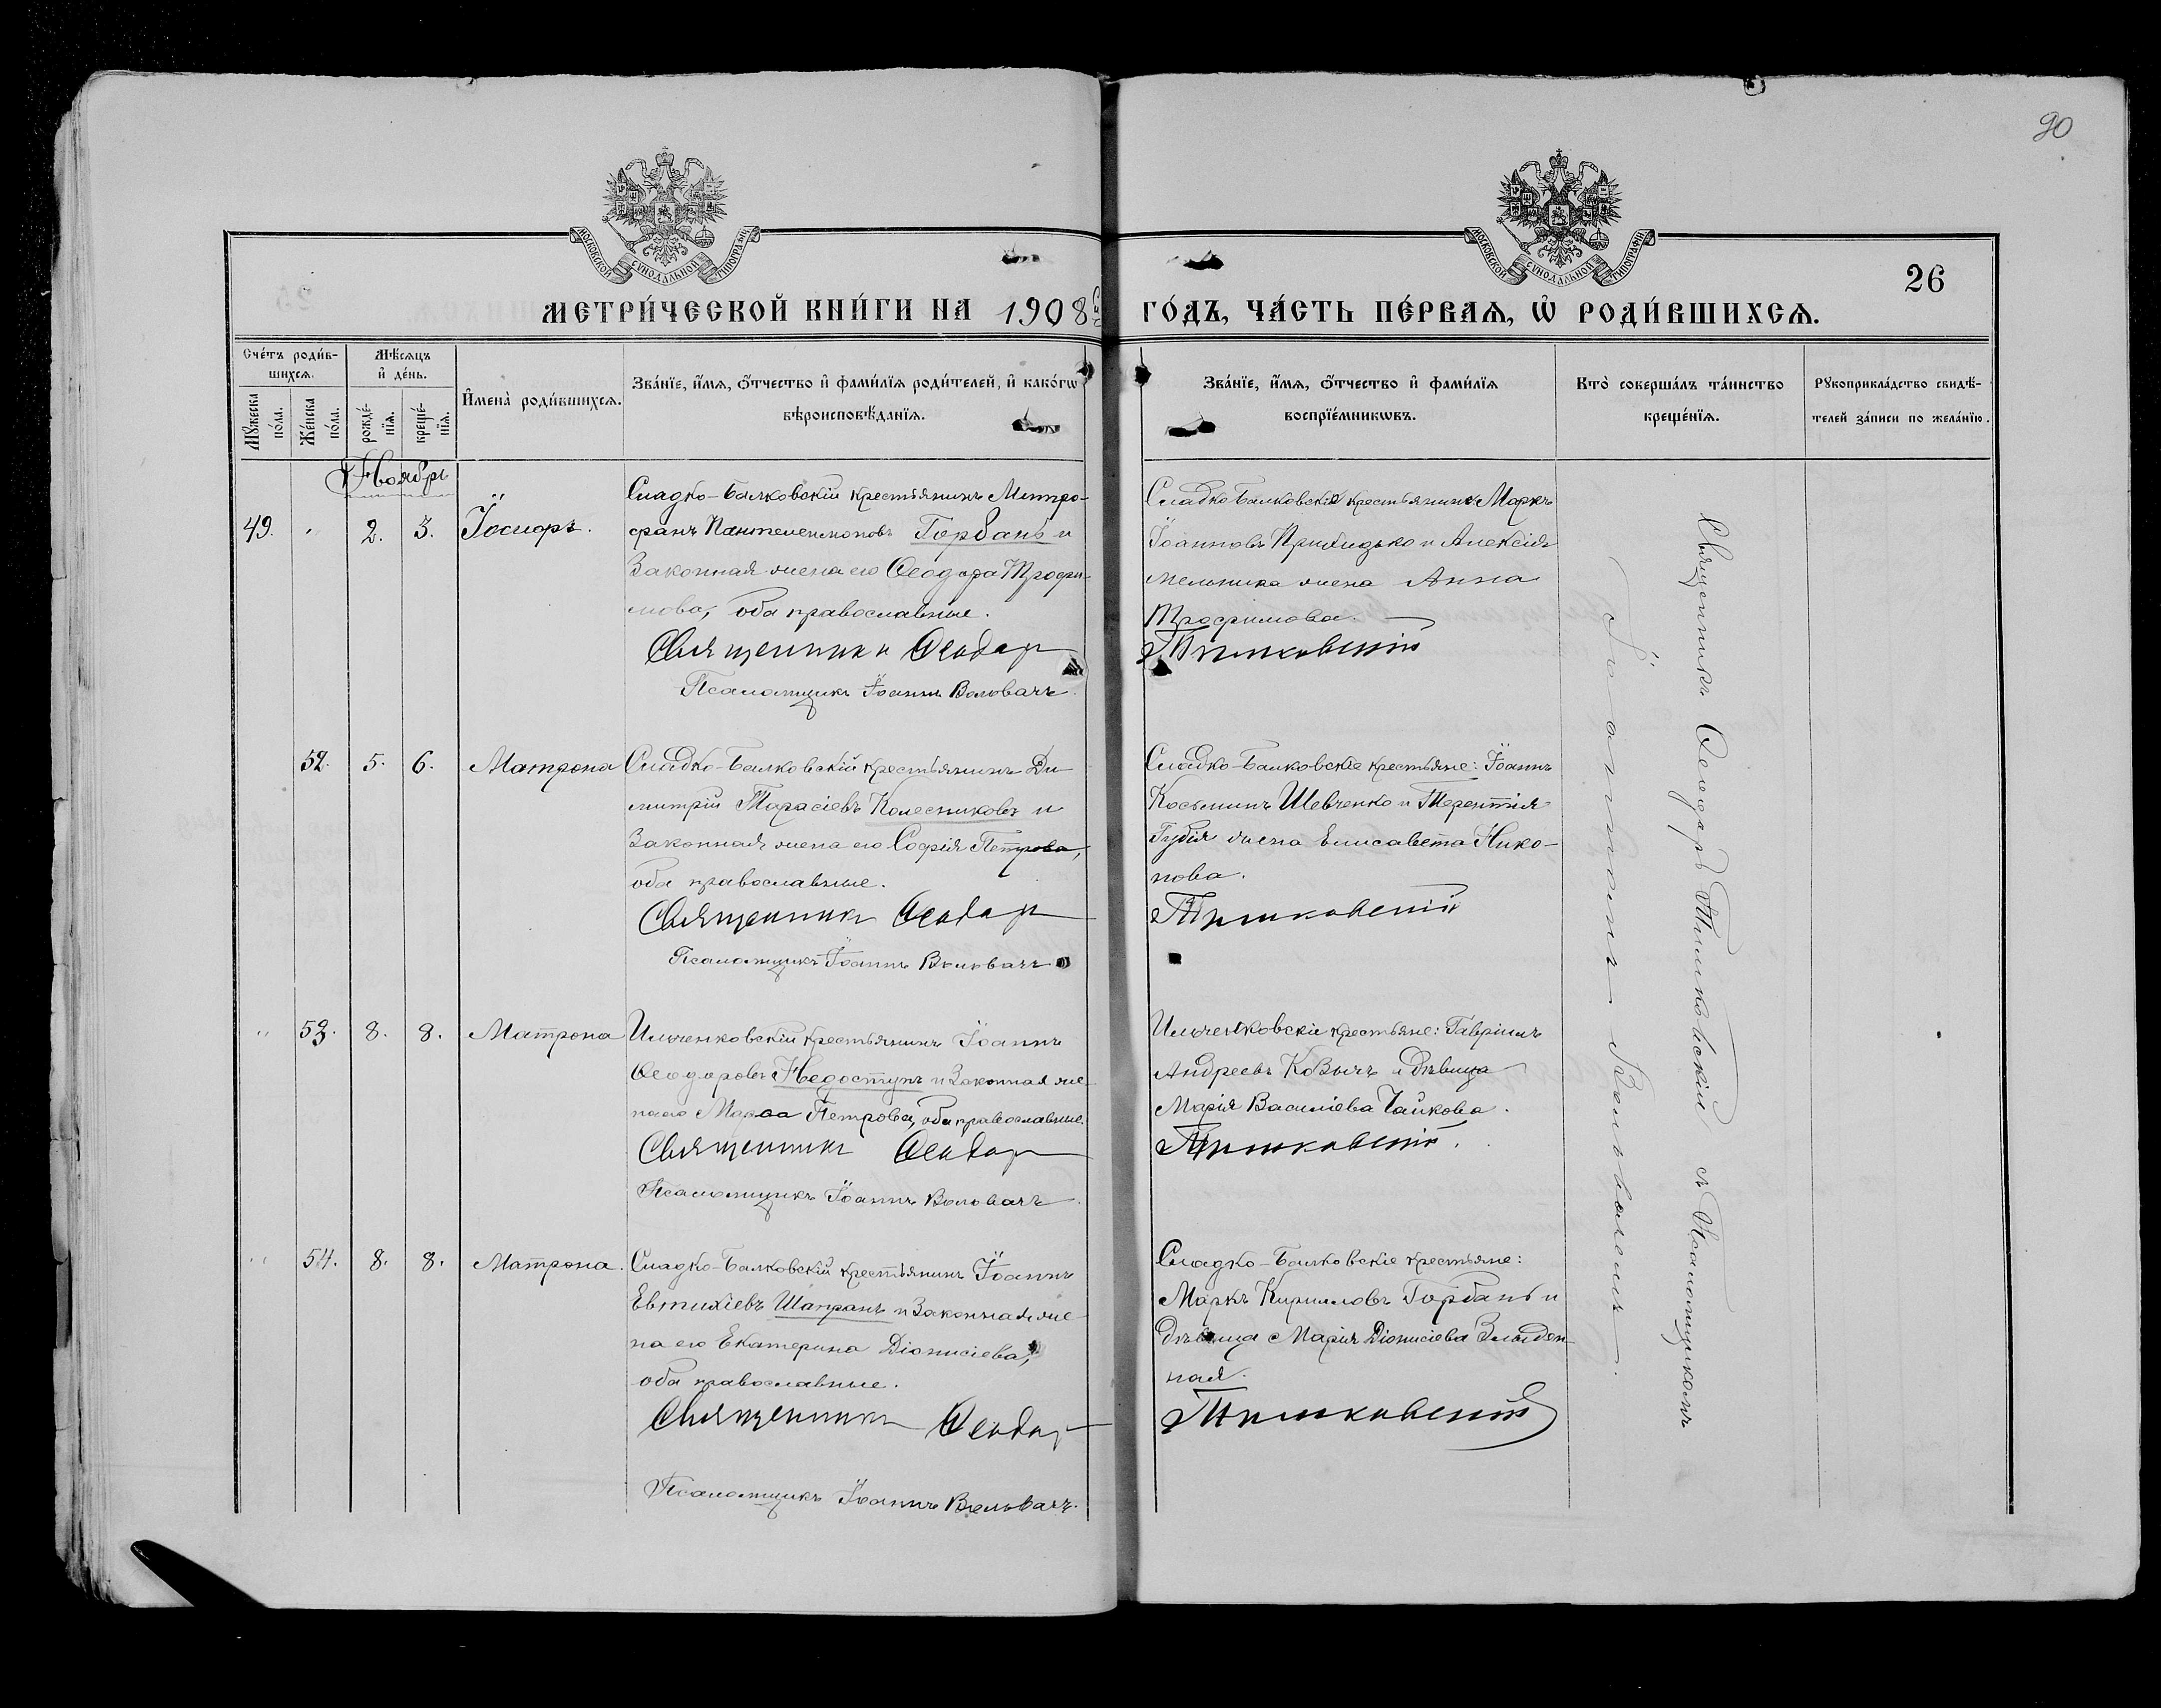 90
МОСКОВСКОЙ СѴНОДАЛЬНОЙ ТИПОГРАФІИ
МОСКОВСКОЙ СѴНОДАЛЬНОЙ ТИПОГРАФІИ
26
МЕТРИ́ЧЕСКОЙ КНИ́ГИ НА 1908 ГО́ДЪ, ЧА́СТЬ ПЕ́РВАѦ, Ѡ҆ РОДИ́ВШИХСѦ.
Сче́тъ роди́в-
шихсѧ.
Мѣ́сѧцъ
и҆ де́нь.
Мꙋ́жеска по́ла.
Же́нска по́ла.
рожде́-нїѧ.
креще́-нїѧ.
И҆мена̀ роди́вшихсѧ.
Зва́нїе, и҆́мѧ, ѻ҆́тчество и҆ фами́лїѧ роди́телей, и҆ како́гѡ
вѣроисповѣ́данїѧ.
Зва́нїе, и҆́мѧ, ѻ҆́тчество и҆ фами́лїѧ
воспрїе́мникѡвъ.
Кто̀ соверша́лъ та́инство
креще́нїѧ.
Рꙋкоприкла́дство свидѣ́-
телей за́писи по жела́нїю.
Ноябрь
49. " 2. 3. Іосифъ.
Сладко-Балковскій крестьянинъ Митро-
фанъ Пантелеимоновъ Горбань и
законная жена его Ѳеодора Трофи-
мова, оба православные.
Священникъ Ѳеодоръ Тимковскій
Псаломщикъ Іоаннъ Воловачъ.
Сладко-Балковскіе крестьянинъ Маркъ
Іоанновъ Прибидько и Алексія
Мельника жена Анна
Трофимова.
52. 5. 6. Матрона
Сладко-Балковскій крестьянинъ Ди
митрій Тарасіевъ Колесниковъ и
законная жена его Софія Петрова,
оба православные.
Священникъ Ѳеодоръ Тимковскій
Псаломщикъ Іоаннъ Воловачъ
Сладко-Балковскіе крестьяне: Іоаннъ
Косьминъ Шевченко и Терентія
Губія жена Елисавета Нико-
нова.
" 53. 8. 8. Матрона
Ильченковскій крестьянинъ Іоаннъ
Ѳеодоровъ Недоступъ и законная же
на его Марѳа Петрова, оба православные.
Священникъ Ѳеодоръ Тимковскій.
Псаломщикъ Іоаннъ Воловачъ
Ильченковскіе крестьяне: Гавріилъ
Андреевъ и дѣвица
Марія Василіева Чайкова.
" 54. 8. 8. Матрона.
Сладко-Балковскій крестьянинъ Іоаннъ
Евтихіевъ Шапранъ и законная же
на его Екатерина Діонисіева,
оба православные.
Священникъ Ѳеодоръ Тимковскій
Псаломщикъ Іоаннъ Воловачъ.
Сладко-Балковскіе крестьяне:
Маркъ Кирилловъ Горбань и
дѣвица Марія Діонисіева Злыден-
ная.
Священникъ Ѳеодоръ Тимковскій съ Псаломщикомъ
Іоанномъ Воловачемъ.